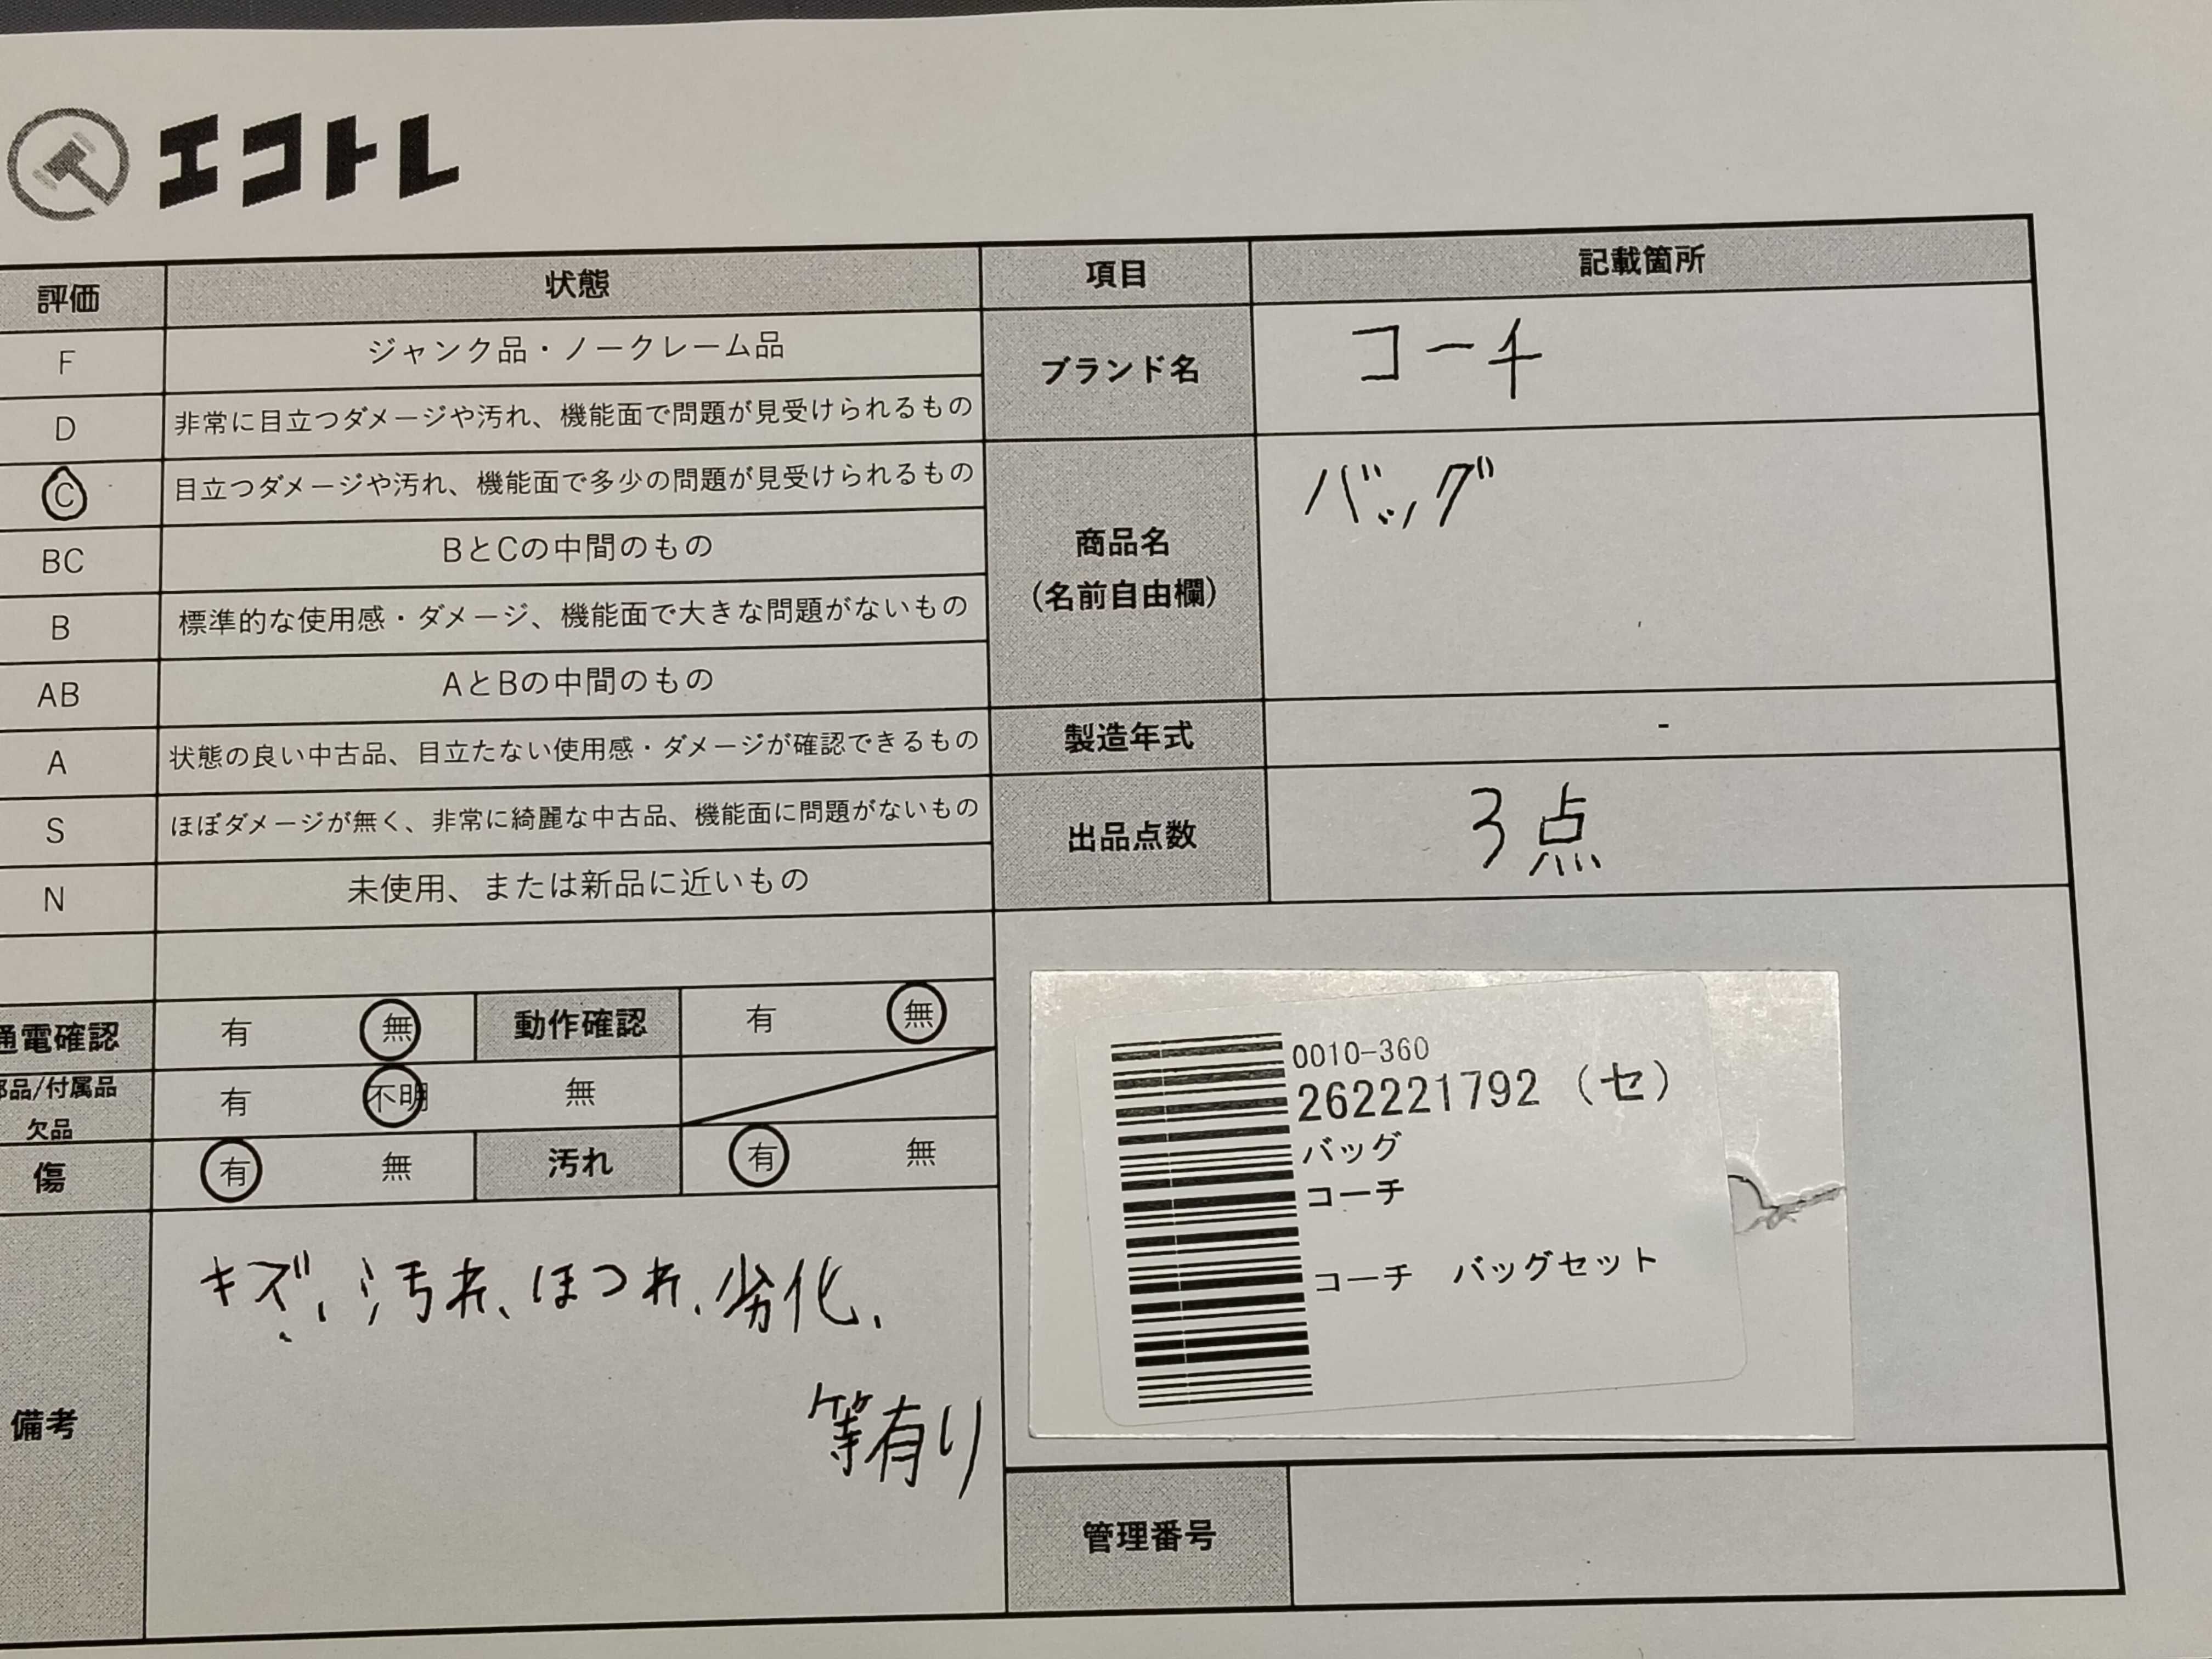 エコトレ
評価 状態
F ジャンク品・ノークレーム品
D 非常に目立つダメージや汚れ、機能面で問題が見受けられるもの
C 目立つダメージや汚れ、機能面で多少の問題が見受けられるもの
BC BとCの中間のもの
B 標準的な使用感・ダメージ、機能面で大きな問題がないもの
AB AとBの中間のもの
A 状態の良い中古品、目立たない使用感・ダメージが確認できるもの
S ほぼダメージが無く、非常に綺麗な中古品、機能面に問題がないもの
N 未使用、または新品に近いもの
通電確認 有 無 動作確認 有 無
部品/付属品
欠品 有 不明 無
傷 有 無 汚れ 有 無
備考
キズ、汚れ、ほつれ、劣化、
等有り
項目 記載箇所
ブランド名 コーチ
商品名
(名前自由欄) バッグ
製造年式 -
出品点数 3点
0010-360
262221792 (セ)
バッグ
コーチ
コーチ バッグセット
管理番号